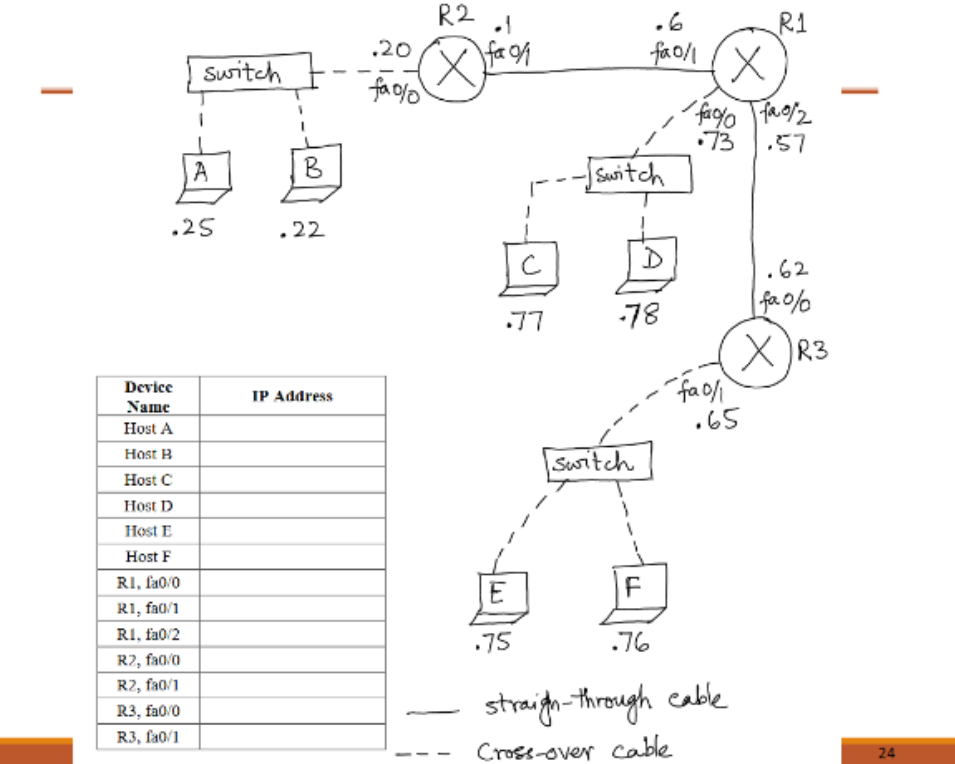 R2
.1
.6
R1
.20
fa0/1
fa0/1
switch
fa0/0
fa0/0
fa0/2
.73
.57
A
B
switch
.25
.22
C
D
.62
fa0/0
.77
.78
R3
fa0/1
.65
Device Name
IP Address
Host A
Host B
Host C
Host D
Host E
Host F
R1, fa0/0
R1, fa0/1
R1, fa0/2
R2, fa0/0
R2, fa0/1
R3, fa0/0
R3, fa0/1
switch
E
F
.75
.76
straign-through cable
Cross-over cable
24